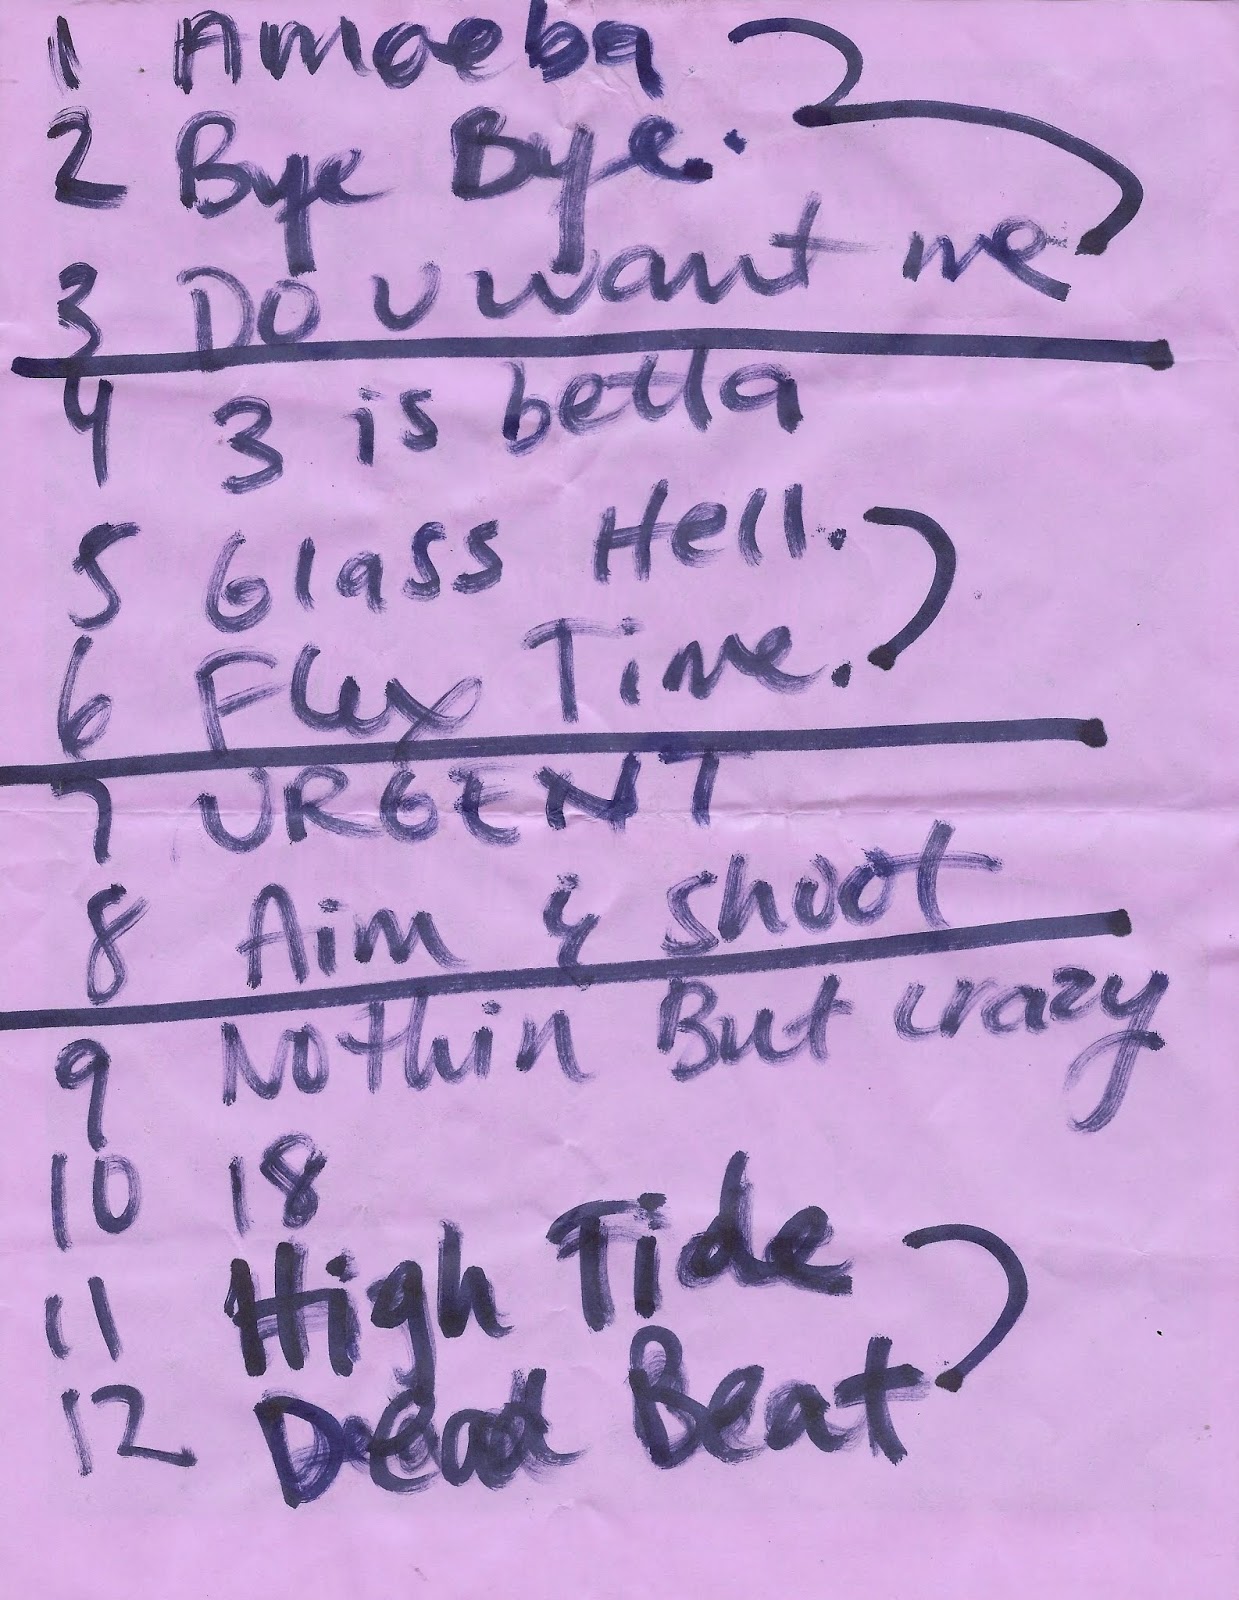 1 Amoeba
2 Bye Bye.
3 Do u want me
4 3 is bella
5 Glass Hell.
6 Flex Time.
7 URGENT
8 Aim & shoot
9 Nothin But crazy
10 18
11 High Tide
12 Dead Beat